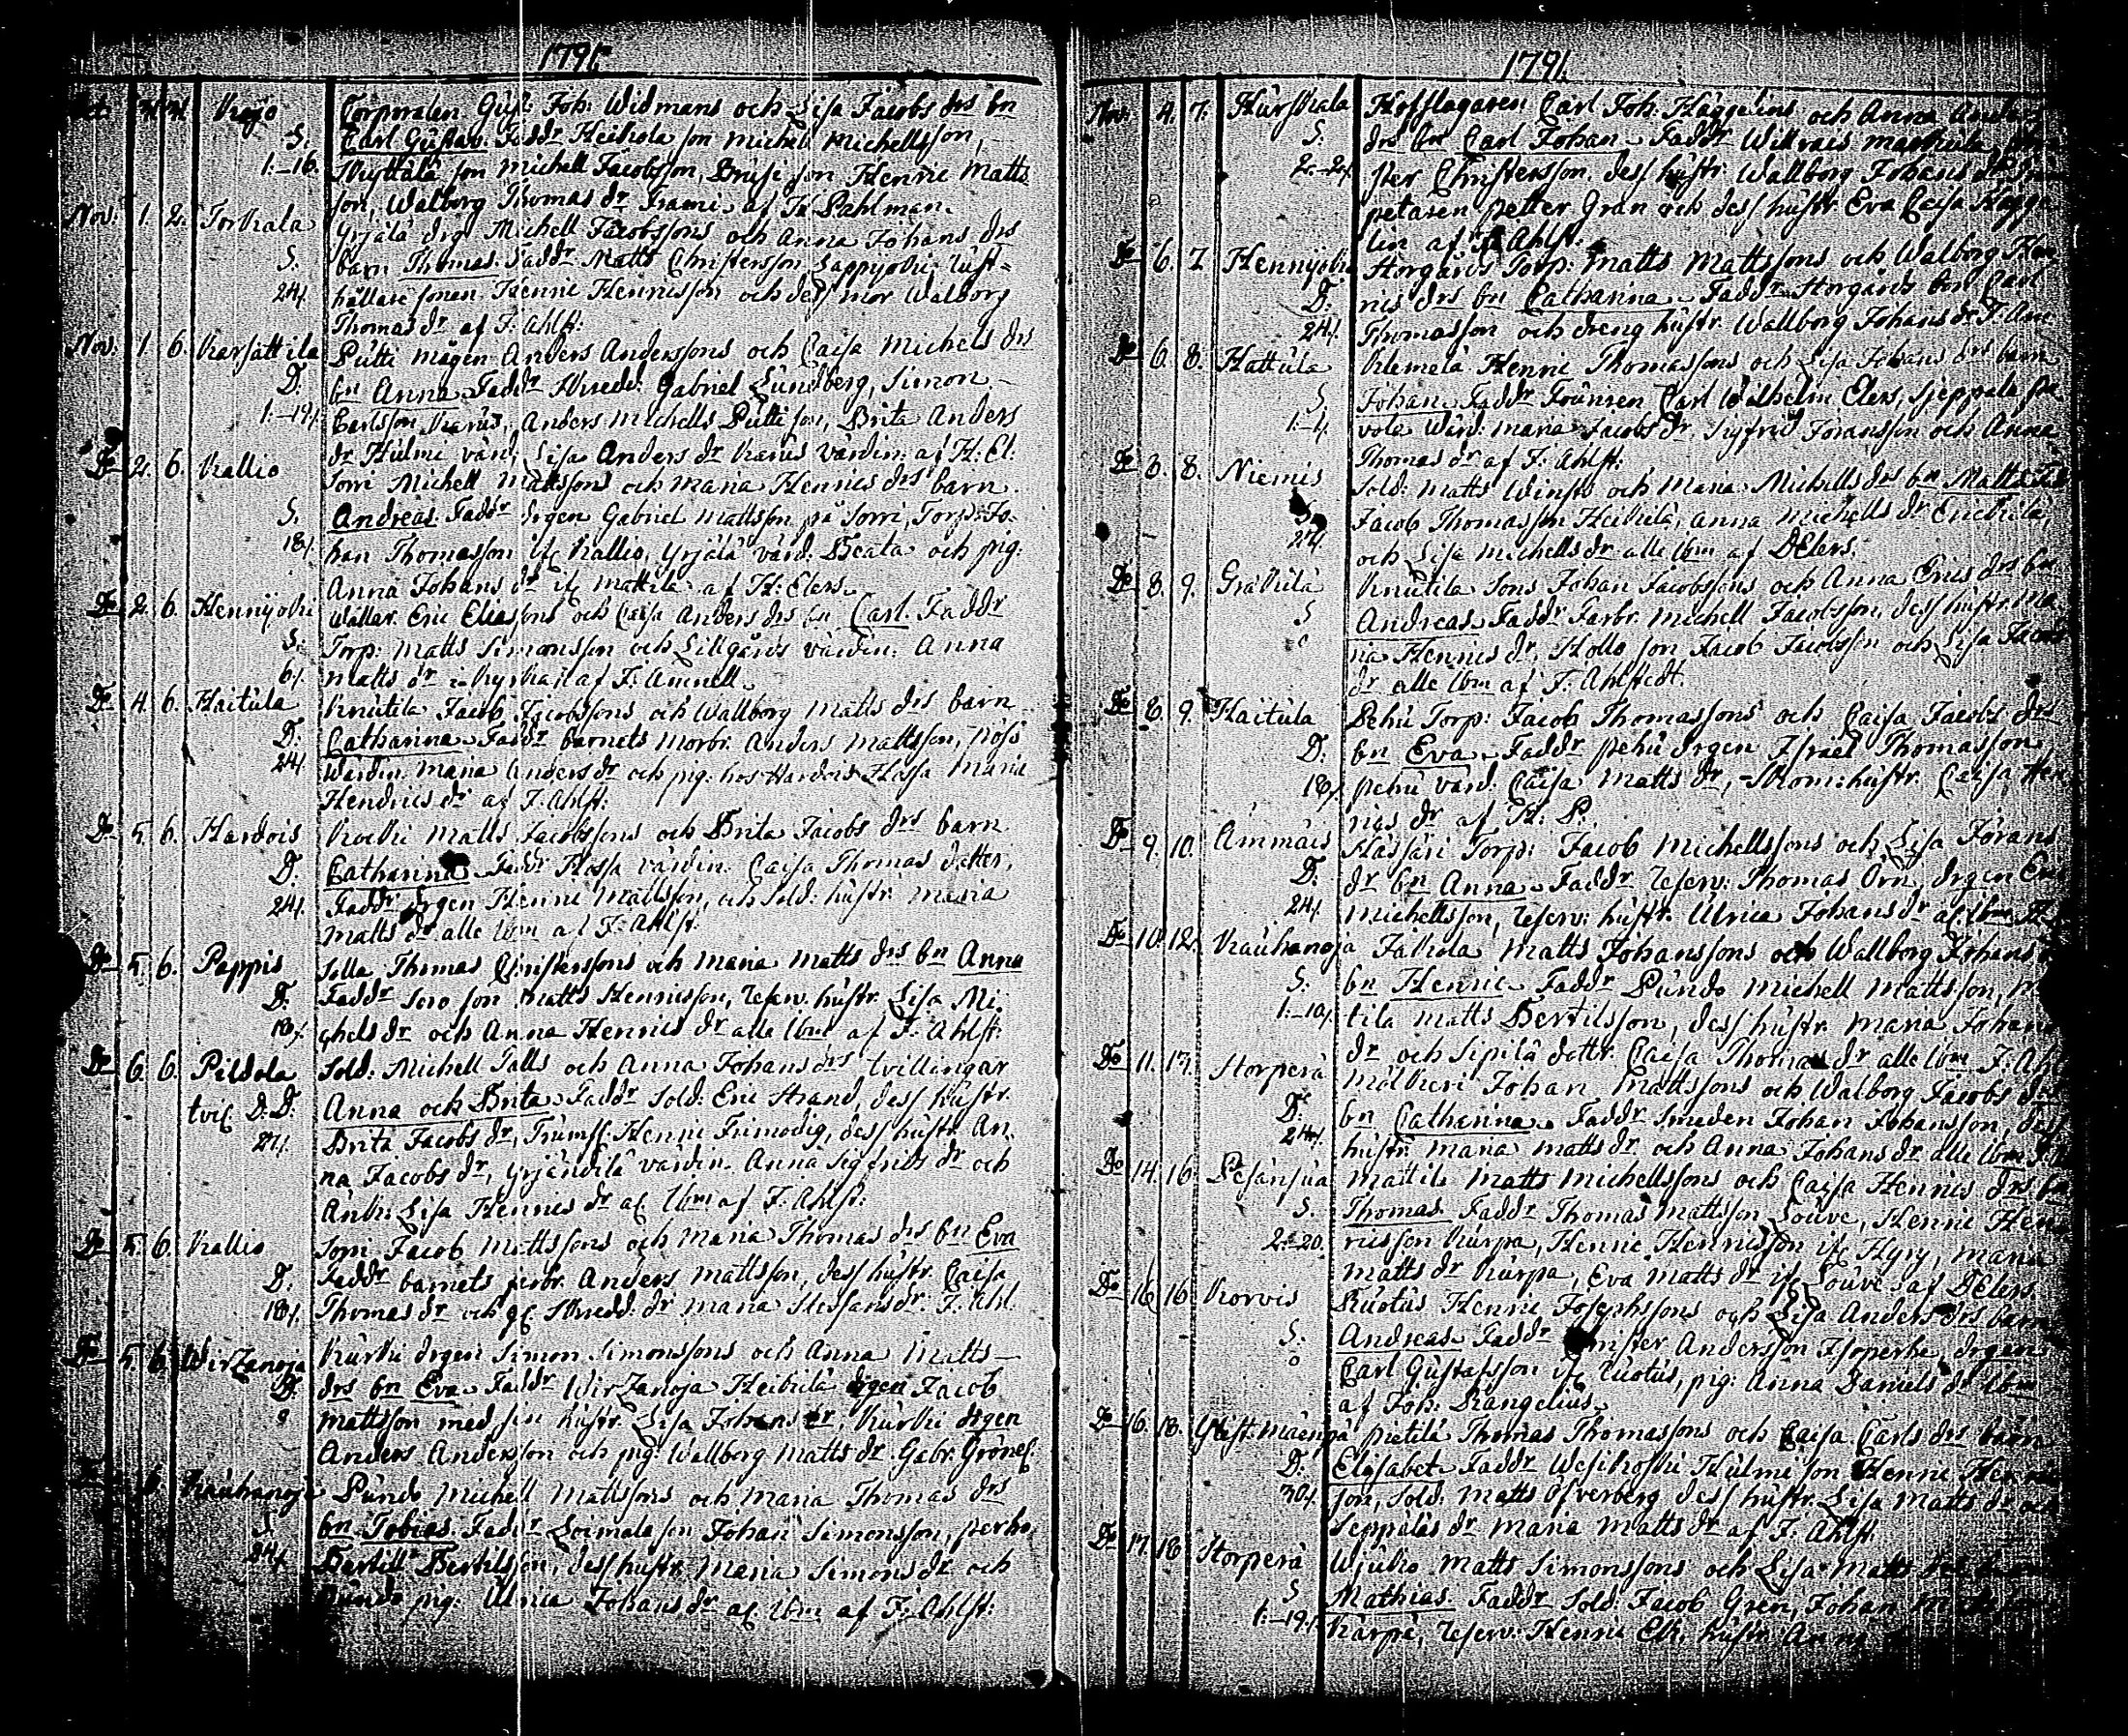 1791.
Oct. 31. 31. Krajo Corporalen Gust: Joh: Widmans och Lisa Jacobs drs bn
S. Carl Gustav. Faddr Heikola son Michel Michellsson,
1:-16. Kyttälä son Michell Jacobsson, son Henric Matts
son, Walborg Thomas dr Frami af Pahlman.
Nov: 1. 2. Torkala Yrjälä drgn Michell Jacobssons och Anna Johans drs
S. barn Thomas. Faddr Matts Christersson Lappjoki rust=
24/. hållare sonen Henric Henricsson och dess mor Walborg
Thomas dr af F: Ahlst:
Nov: 1. 6. Karsattila Putti mågen Anders Anderssons och Caisa Michels drs
D. bn Anna. Faddr Skredd: Gabriel Sundberg, Simon
1:-19/. Carlsson Karus, Anders Michells Putti son, Brita Anders
dr Hulmi värd: Lisa Anders dr Karus värdin: af H: El:
Do 2. 6. Kallio Sorri Michell Mattssons och Maria Henrics drs barn
S. Andreas. Faddr drgen Gabriel Mattsson på Sorri, Torp: Jo-
18/. han Thomasson if: Kallio, Yrjälä värd: Beata och pig:
Anna Johans dr if: Mattila af H: Elers.
Do 2. 6. Hennijoki Wallar. Eric Eliassons och Caisa Anders drs bn Carl. Faddr
S. Torp: Matts Simonsson och Lillgårds värdin: Anna
6/. Matts dr i af F: Amnell.
Do 4. 6. Haitula Knutila Jacob Jacobssons och Wallborg Matts drs barn
D. Catharina. Faddr barnets morbr: Anders Mattsson,
24/. Wärdin. Maria Anders dr och pig: hos Hardois Hossa Maria
Hendrics dr af F: Ahlst:
Do 5. 6. Hardois Kocki Matts Jacobssons och Brita Jacobs drs barn
D. Catharina. Faddr Hossa värdin: Caisa Thomas dotter,
24/. Faddr drgen Henric Mattsson, och Sold: hustr: Maria
Matts dr alle ibm af F: Ahlst:
Do 5. 6. Pappis Solla Thomas Christerssons och Maria Matts drs bn Anna
D. Faddr son Matts Henricsson, Reserv. hustr. Lisa Mi
18/. chels dr och Anna Henrics dr alle ibm af F: Ahlst:
Do 6. 6. Pildola Sold: Michell Talls och Anna Johans drs tvillingar
tvil: D: D: Anna och Brita. Faddr Sold: Eric Strand, dess hustr.
27/. Brita Jacobs dr, Trumsl: Henric Frimodig, dess hustr An
na Jacobs dr, värdin Anna Sigfrids dr och
Änk: Lisa Henrics dr af ibm af F: Ahlst:
Do 5. 6. Kallio Sorri Jacob Mattssons och Maria Thomas drs bn Eva
D. Faddr barnets farbr: Anders Mattsson, dess hustr. Caisa
18/. Thomas dr och Skredd: dr Maria Steffans dr F: Ahl.
Do 5. 6. Wirzanoja Kurki drgen Simon Simonssons och Anna Matts
D. drs bn Eva. Faddr Wirzanoja Heikilä drgen Jacob
Mattsson med sin hustr. Lisa Johans dr, Kurki drgen
Anders Andersson och pig: Wallborg Matts dr Gabr: Grönef:
Kauhanoja Pundo Michell Mattssons och Maria Thomas drs
S. bn Tobias. Faddr Loimala son Johan Simonsson,
24/. Bertill Bertilsson, dess hustr. Maria Simons dr och
Pundo pig: Ulrica Johans dr af ibm af F: Ahlst:
1791.
Nov: 4. 7. Hurskala Hofslagaren Carl Joh. Haggelins och Anna Anders
S. drs bn Carl Johan. Faddr
2.-24. Christersson, dess hustr. Wallborg Johans dr
petaren Petter Gran och dess hustr Eva Caisa Hagge
lin af F: Ahlst:
Do 6. 7. Hennijoki Storgårds Torp: Matts Mattssons och Walborg Hen
D. rics drs bn Catharina. Faddr Storgårds son Carl
24/. Thomasson och dreng hustr. Wallborg Johans dr F: Am:
Do 6. 8. Hattula Klemelä Henric Thomassons och Lisa Johans drs barn
S. Johan. Faddr Carl Wilhelm Elers,
1:-4. Maria Jacobs dr, Sigfrid Göransson och Anna
Thomas dr af F: Ahlst:
Do 8. 8. Niemis Sold: Matts Winsts och Maria Michells drs bn Matts
S. Jacob Thomasson Heikilä, Anna Michells dr
27/. och Lisa Michells dr alle ibm af D Elers.
Do 8. 9. Gräkulä Knutila Sons Johan Jacobssons och Anna Erics drs bn
S. Andreas. Faddr Farbr. Michell Jacobsson, dess hustr. Ma
na Henrics dr, Hollo son Jacob Jacobsson och Lisa Jacobs
dr alle ibm af F: Ahlstedt.
Do 8. 9. Haitula Pehu Torp: Jacob Thomassons och Caisa Jacobs drs
D. bn Eva. Faddr Pehu drgen Israel Thomasson,
18/. Pehu värd: Caisa Matts dr, Skom: hustr. Caisa Hen
rics dr af H: P.
Do 9. 10. Ämmäis Hassari Torp: Jacob Michellssons och Lisa Görans
D. dr bn Anna. Faddr Reserv: Thomas Örn, drgen Eric
24/. Michellsson, Reserv: hustr. Ulrica Johans dr af ibm
Do 10. 12. Kauhanoja Jakola Matts Johanssons och Wallborg Johans
S. bn Henric. Faddr Pundo Michell Mattsson,
1:-10/. tila Matts Bertilsson, dess hustr. Maria Johans
dr och Sipilä dottr. Caisa Thomas dr alle ibm F: Ah
Do 11. 13. Storperä Mälkeri Johan Mattssons och Walborg Jacobs drs
D. bn Catharina. Faddr Smeden Johan Johansson, dess
24/. hustr: Maria Matts dr och Anna Johans dr alle ibm
Do 14. 16. Pesänsua Mattil: Matts Michellssons och Caisa Henrics drs
S. Thomas. Faddr Thomas Mattsson Louve, Henric Hen
2.-20. ricsson Kurpa, Henric Henricsson if: Hyry,
Matts dr Kurpa, Eva Matts dr if: Louve af D Elers.
Do 16. 16. Korvis Ruotus Henric Josephssons och Lisa Anders drs barn
S. Andreas. Faddr Christer Andersson Isoperhe, drgen
Carl Gustafsson if: Ruotus, pig: Anna Daniels dr ibm
af Joh: Rangelius.
Do 16. 18. Pietilä Thomas Thomassons och Caisa Carls drs barn
D. Elisabet. Faddr Wesikoski Hulmi son Henric Henric
30/. son, Sold: Matts Öfverberg dess hustr. Lisa Matts dr och
Seppäläs dr Maria Matts dr af F: Ahlst:
Do 17. 18. Storperä Wjukio Matts Simonssons och Lisa Matts drs barn
S. Mathias. Faddr Sold: Jacob Gren, Johan
1:-19/. Kärpä, Reserv: Henric Elk, hustr. Anna